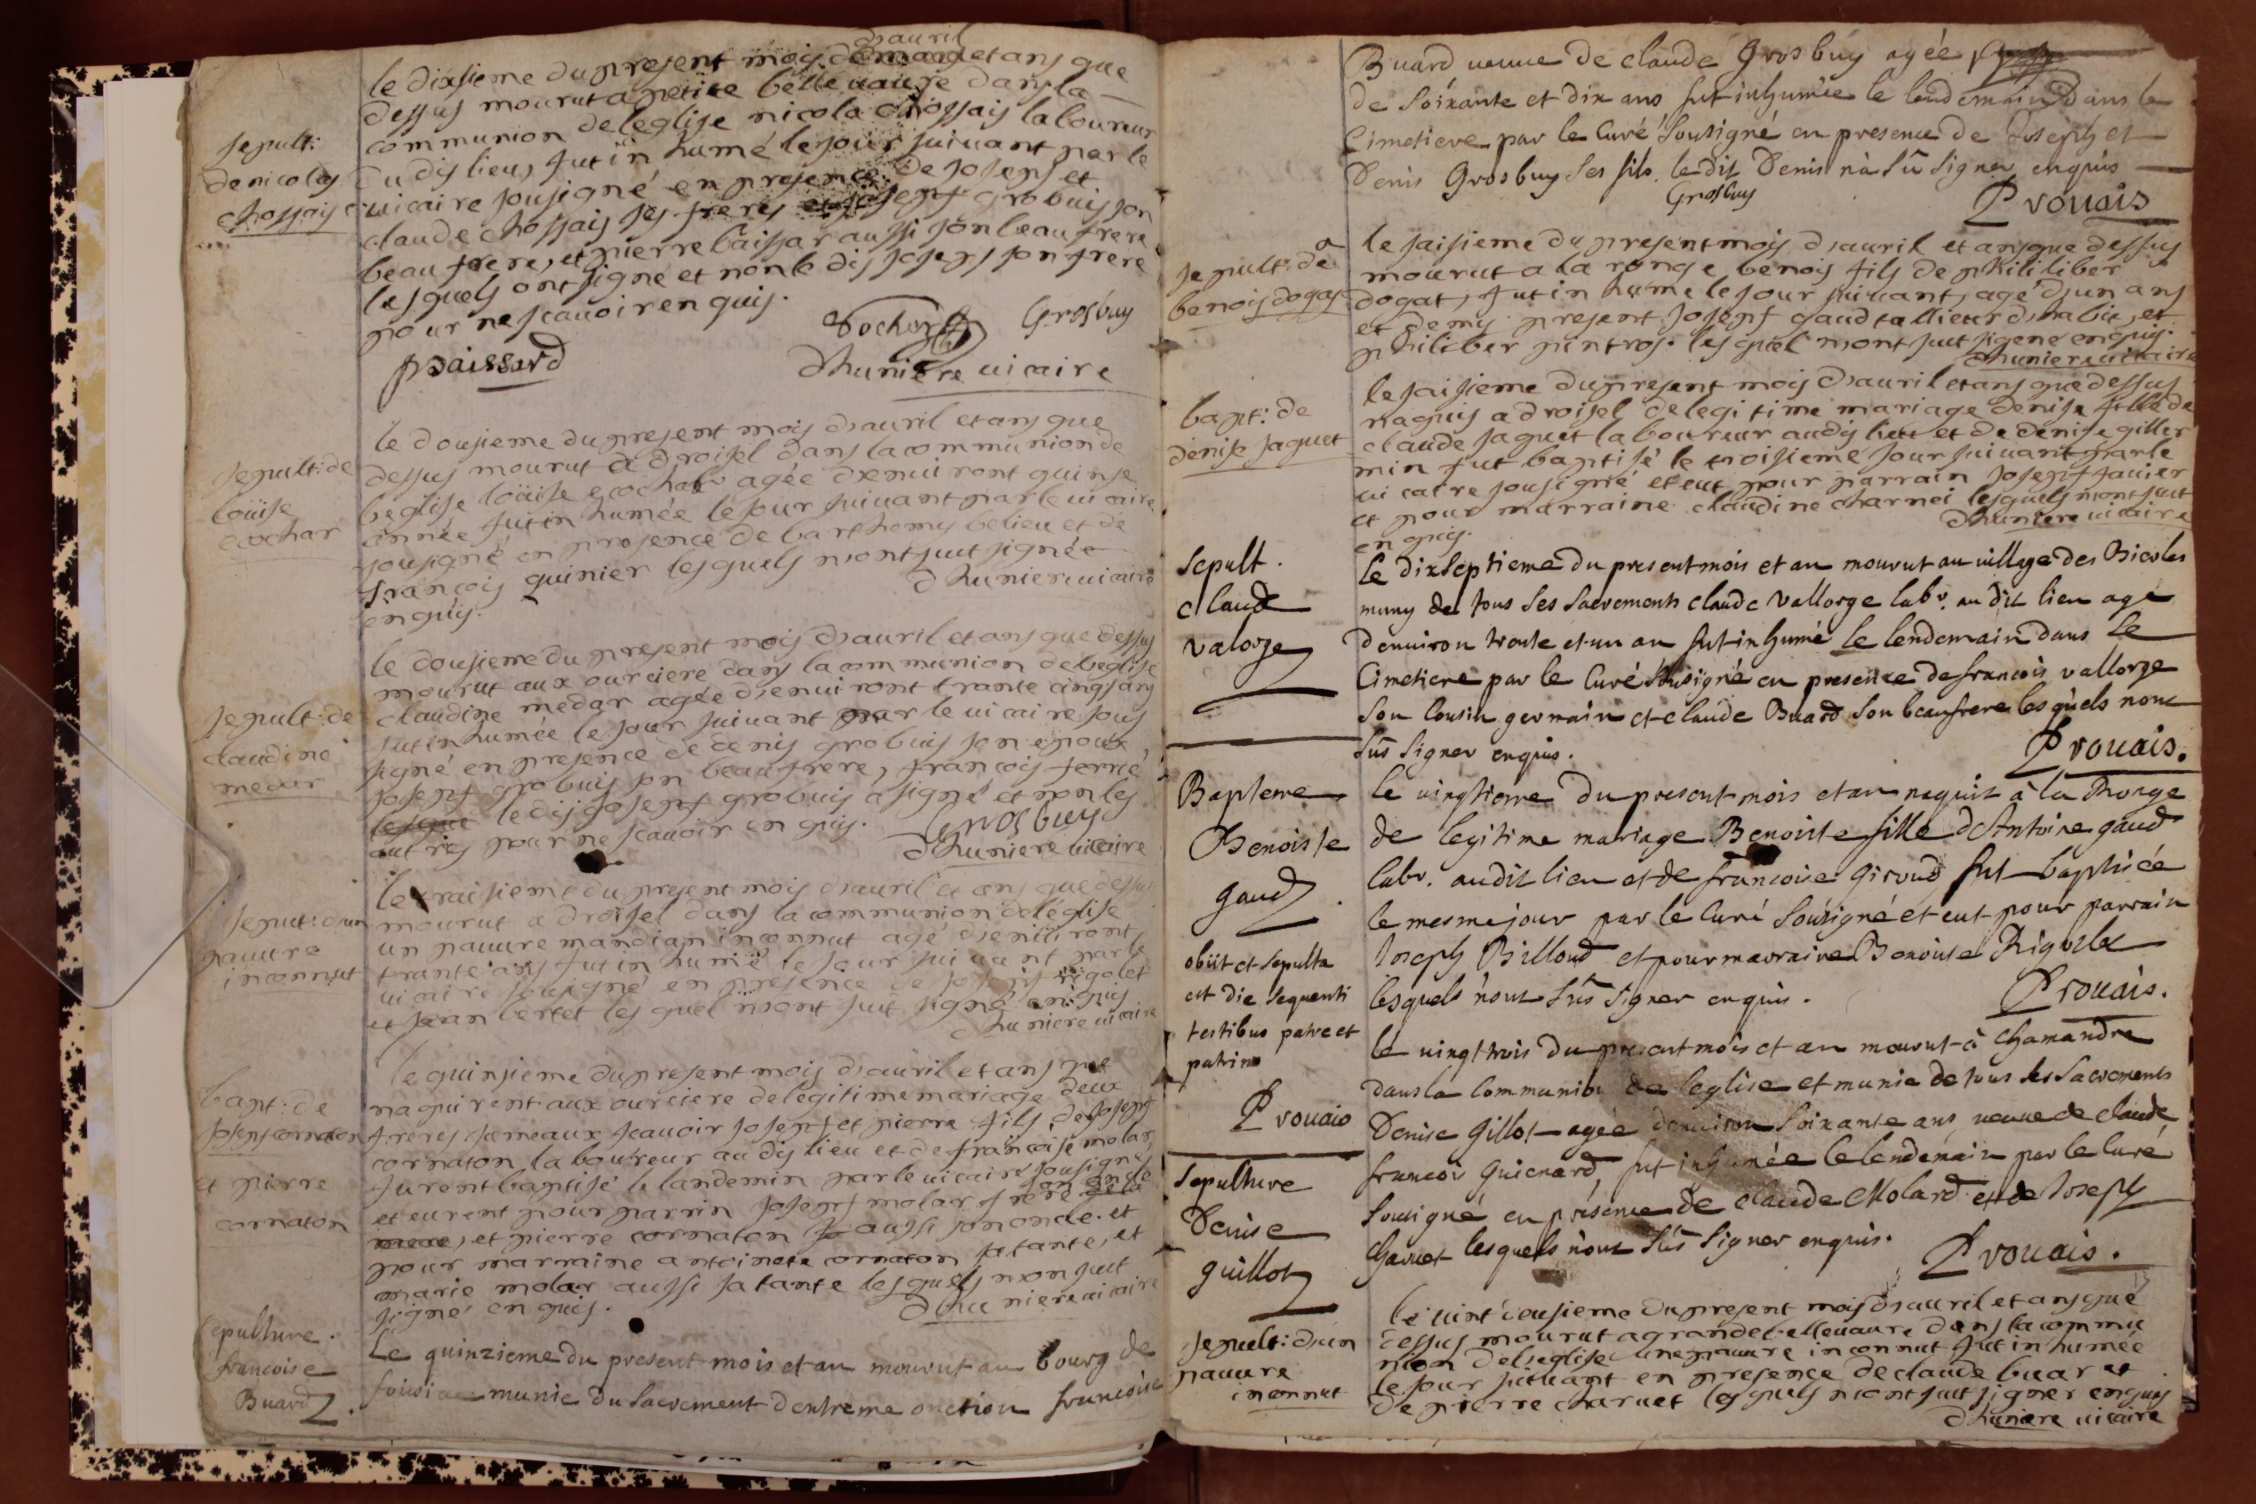 d'auril
le dixsieme du present mois et ans que
dessus mourut a petite bellevaure dans la
communion de leglise nicola chossais laboureur
sepult:
de nicolas
chossais
du dis lieu, fut in humé le jour suiuant par le
uicaire sousigné en presence de josepf et
claude chossais ses freres et josepf grobuis son
beau frere, et pierre baissar aussi son beau frere
lesquels ont signé et non le dis josepf son frere
pour ne scauoir en quis.
Grosbuy
paissard
dhuniere uicaire
le dousieme du present mois d'auril et ans que
dessus mourut a droisel dans la communion de
sepult: de
loüise
cochar
leglise loüise cochar agée denuiront quinse
année fut in humée le jour suiuant par le uicaire
sousigné en presence de barthomy belieu et de
francois quinier lesquels nont sut signée
enquis.
dhuniere uicaire
le dousieme du present mois d'auril et ans que dessus
mourut aux ourciere dans la communion de leglise
claudine medar agée d'enuiront trante cinq ans
sepult: de
claudine
medar
fut in humée le jour suiuant par le uicaire sous
signé en presence de denis grobuis son epoux,
josepf grobuis son beau frere, francois ferrié
lesque le dis josepf grobuis a signé et non les
autres pour ne scauoir en quis.
Grosbuy
dhuniere uicaire
le traisieme du present mois d'auril et ans que dessus
mourut a droisel dans la communion de léglise
sepult: d'un
pauure
inconnut
un pauure mandian inconnut agé d'enuiront
trante ans fut in humé le jour suiuant par le
uicaire sousigné en presence de rigolet
et jean bertet les quel nont sut signé enquis
dhuniere uicaire
le quinsieme du present mois d'auril et ans que
naquirent aux ourciere de legitime mariage deux
bapt: de
josepf cornaton
et pierre
cornaton
freres jumeaux scauoir josepf et pierre fils de josepf
cornaton laboureur au dis lieu et de francoise molar,
furent baptisé le landemin par le uicaire sousigné
et eurent pour parrin josepf molar son oncle
et pierre cornaton aussi son oncle. et
pour marraine antoinete cornaton sa tante, et
marie molar aussi sa tante lesquels non sut
signé en quis.
dhuniere uicaire
sepulture.
francoise
Buard
Le quinzieme du present mois et an mourut au bourg de
munie du sacrement d'extreme onction francoise
Buard veuue de claude Grosbuy agée
de soixante et dix ans fut inhumée le lendemain dans le
Cimetiere par le Curé sousigné en presence de Joseph et
Denis Grosbuy ses fils. ledit Denis n'a sû signer enquis
Grosbuy
P rouais
le saisieme du present mois d'auril et ans que dessus
sepult: de
benois dogat
mourut a la ronge benois fils de philiber
dogat, fut in humé le jour suiuant, agé d'un ans
et demy present josepf gaud taillieur d'habit, et
philiber pintros. lesquel n'ont sut signé enquis.
dhuniere uicaire
le saisieme du present mois d'auril et ans que dessus
bapt: de
denise jaquet
naquis a droisel de legitime mariage denise fille de
claude jaquet laboureur au dis lieu et de denise giller
min fut baptisé le troisieme jour suiuant par le
uicaire sousigné et eut pour parrain josepf fauier
et pour marraine claudine charnei lesquels n'ont sut
en quis.
dhuniere uicaire
Sepult.
claude
valorge
Le dixseptieme du present mois et an mourut au uillage des Bicoles
muny de tous ses sacrements claude vallorge labr. au dit lieu agé
d'enuiron trente et un an fut inhumé le lendemain dans le
Cimetiere par le Curé sousigné en presence de francois vallorge
son cousin germain et claude Buard son beaufrere lesquels nont
sû signer enquis.
P rouais.
Bapteme
Benoiste
gaud
Le uingtieme du present mois et an naquit à la Ronge
de legitime mariage Benoiste fille d'Antoine gaud
labr. audit lieu et de francoise Giroud fut baptisée
le mesme jour par le Curé sousigné et eut pour parrain
Joseph Billoud et pour marraine Benoiste Rigolet
lesquels n'ont sû signer enquis.
P rouais.
obiit et sepulta
est die sequenti
testibus patre et
patrino
P rouais
le uingt trois du present mois et an mourut à Chamandre
dans la communion de l'eglise et munie de tous ses sacrements
Sepulture
Denise
guillot
Denise Gillot agée d'enuiron soixante ans veuue de claude
francois Guienard, fut inhumée le lendemain par le Curé
sousigné en présence de claude Molard et de Joseph
Charuet lesquels n'ont sû signer enquis.
P rouais.
le uint deusieme du present mois d'auril et ans que
dessus mourut a grande bellevaure dans la commu
sepult: d'un
pauure
inconnut
nion de l'eglise une pauure inconnut fut in humée
le jour suiuant en presence de claude buar et
de pierre charuet lesquels n'ont sut signer enquis
dhuniere uicaire